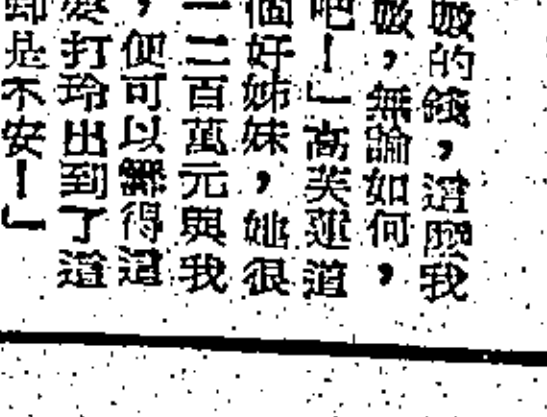 的錢，這麼我
，無論如何，
吧！」高芙蓮道
個好姊妹，她很
二百萬元與我
，便可以得這
打玲出到了這
是不安！」